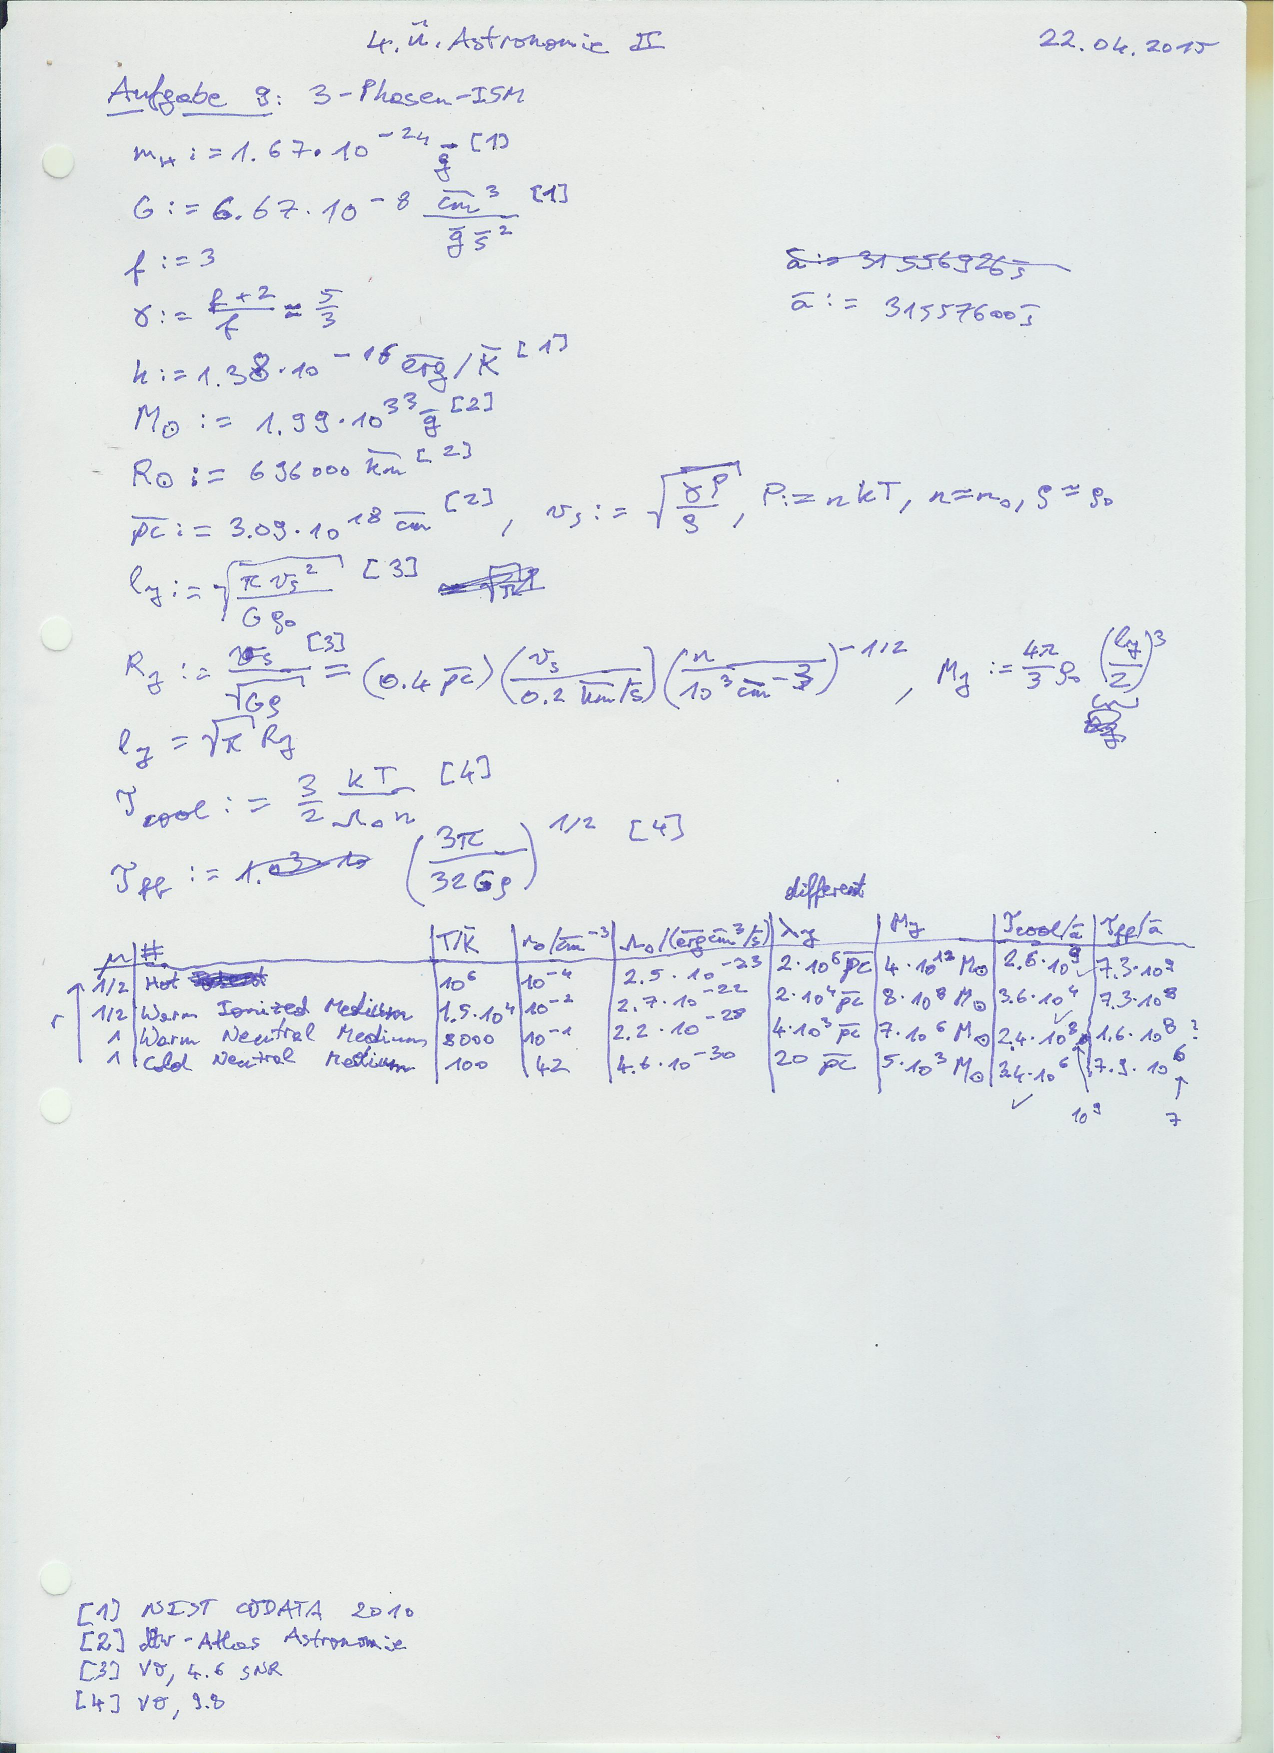 4. Ü. Astronomie II 22.04.2015
Aufgabe 9: 3-Phasen-ISM
m_H := 1.67·10^-24 g̅ [1]
G := 6.67·10^-8 c̅m̅^3/(g̅ s̅^2) [1]
f := 3
a̅ := 31556926 s̅
γ := (f+2)/f = 5/3
a̅ := 31557600 s̅
k := 1.38·10^-16 e̅r̅g̅/K̅ [1]
M_⊙ := 1.99·10^33 g̅ [2]
R_⊙ := 696000 k̅m̅ [2]
p̅c̅ := 3.09·10^18 c̅m̅ [2], v_s := √(γP/ρ), P := nkT, n=n_0, ρ=ρ_0
l_J := √(πv_s^2/(Gρ_0)) [3]
R_J := v_s/√(Gρ) [3] = (0.4 p̅c̅)(v_s/(0.2 k̅m̅/s̅))(n/(10^3 c̅m̅^-3))^-1/2, M_J := 4π/3 ρ_0 (l_J/2)^3
l_J = √π R_J
τ_cool := 3/2 kT/(Λ_0 n) [4]
τ_ff := (3π/(32Gρ))^1/2 [4]
different
μ | # | T/K̅ | n_0/c̅m̅^-3 | Λ_0/(e̅r̅g̅ c̅m̅^3/s̅) | λ_J | M_J | τ_cool/a̅ | τ_ff/a̅
1/2 | Hot | 10^6 | 10^-4 | 2.5·10^-23 | 2·10^6 p̅c̅ | 4·10^12 M_⊙ | 2.6·10^9 ✓ | 7.3·10^9
r ↑ 1/2 | Warm Ionized Medium | 1.5·10^4 | 10^-2 | 2.7·10^-22 | 2·10^4 p̅c̅ | 8·10^8 M_⊙ | 3.6·10^4 ✓ | 7.3·10^8
1 | Warm Neutral Medium | 8000 | 10^-1 | 2.2·10^-28 | 4·10^3 p̅c̅ | 7·10^6 M_⊙ | 2.4·10^8 | 1.6·10^8 ?
1 | Cold Neutral Medium | 100 | 42 | 4.6·10^-30 | 20 p̅c̅ | 5·10^3 M_⊙ | 3.4·10^6 ✓ | 7.9·10^6
10^9 7
[1] NIST CODATA 2010
[2] dtv-Atlas Astronomie
[3] VO, 4.6 SNR
[4] VO, 9.8